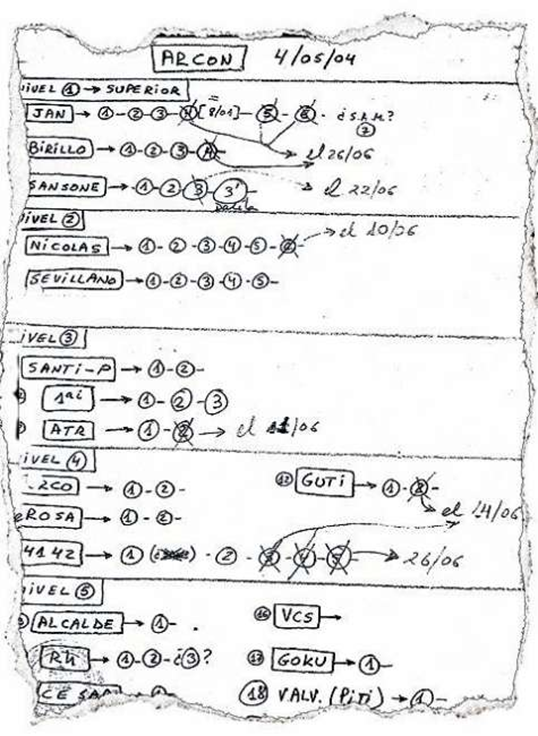 ARCON 4/05/04
IVEL ① → SUPERIOR
JAN → ①-②-③-④[8/01]-⑤-⑥. ¿S.H.M?
②
BIRILLO → ①-②-③-④- → el 26/06
SANSONE → ①-②-③-③'- → el 22/06
IVEL ②
NICOLAS → ①-②-③-④-⑤-⑥- → el 10/06
SEVILLANO → ①-②-③-④-⑤-
IVEL ③
SANTI-P → ①-②-
→ ①-②-③
ATR → ①-② → el /06
IVEL ④
RCO → ①-②- ⑫ GUTI → ①-②- el 14/06
ROSA → ①-②-
4142 → ① - ② - ③-④-⑤ → 26/06
IVEL ⑤
ALCALDE → ①- . ⑯ VCS →
RH → ①-②-¿③? GOKU → ①-
CESAR → ①- ⑱ VALV. (PITI) → ①-